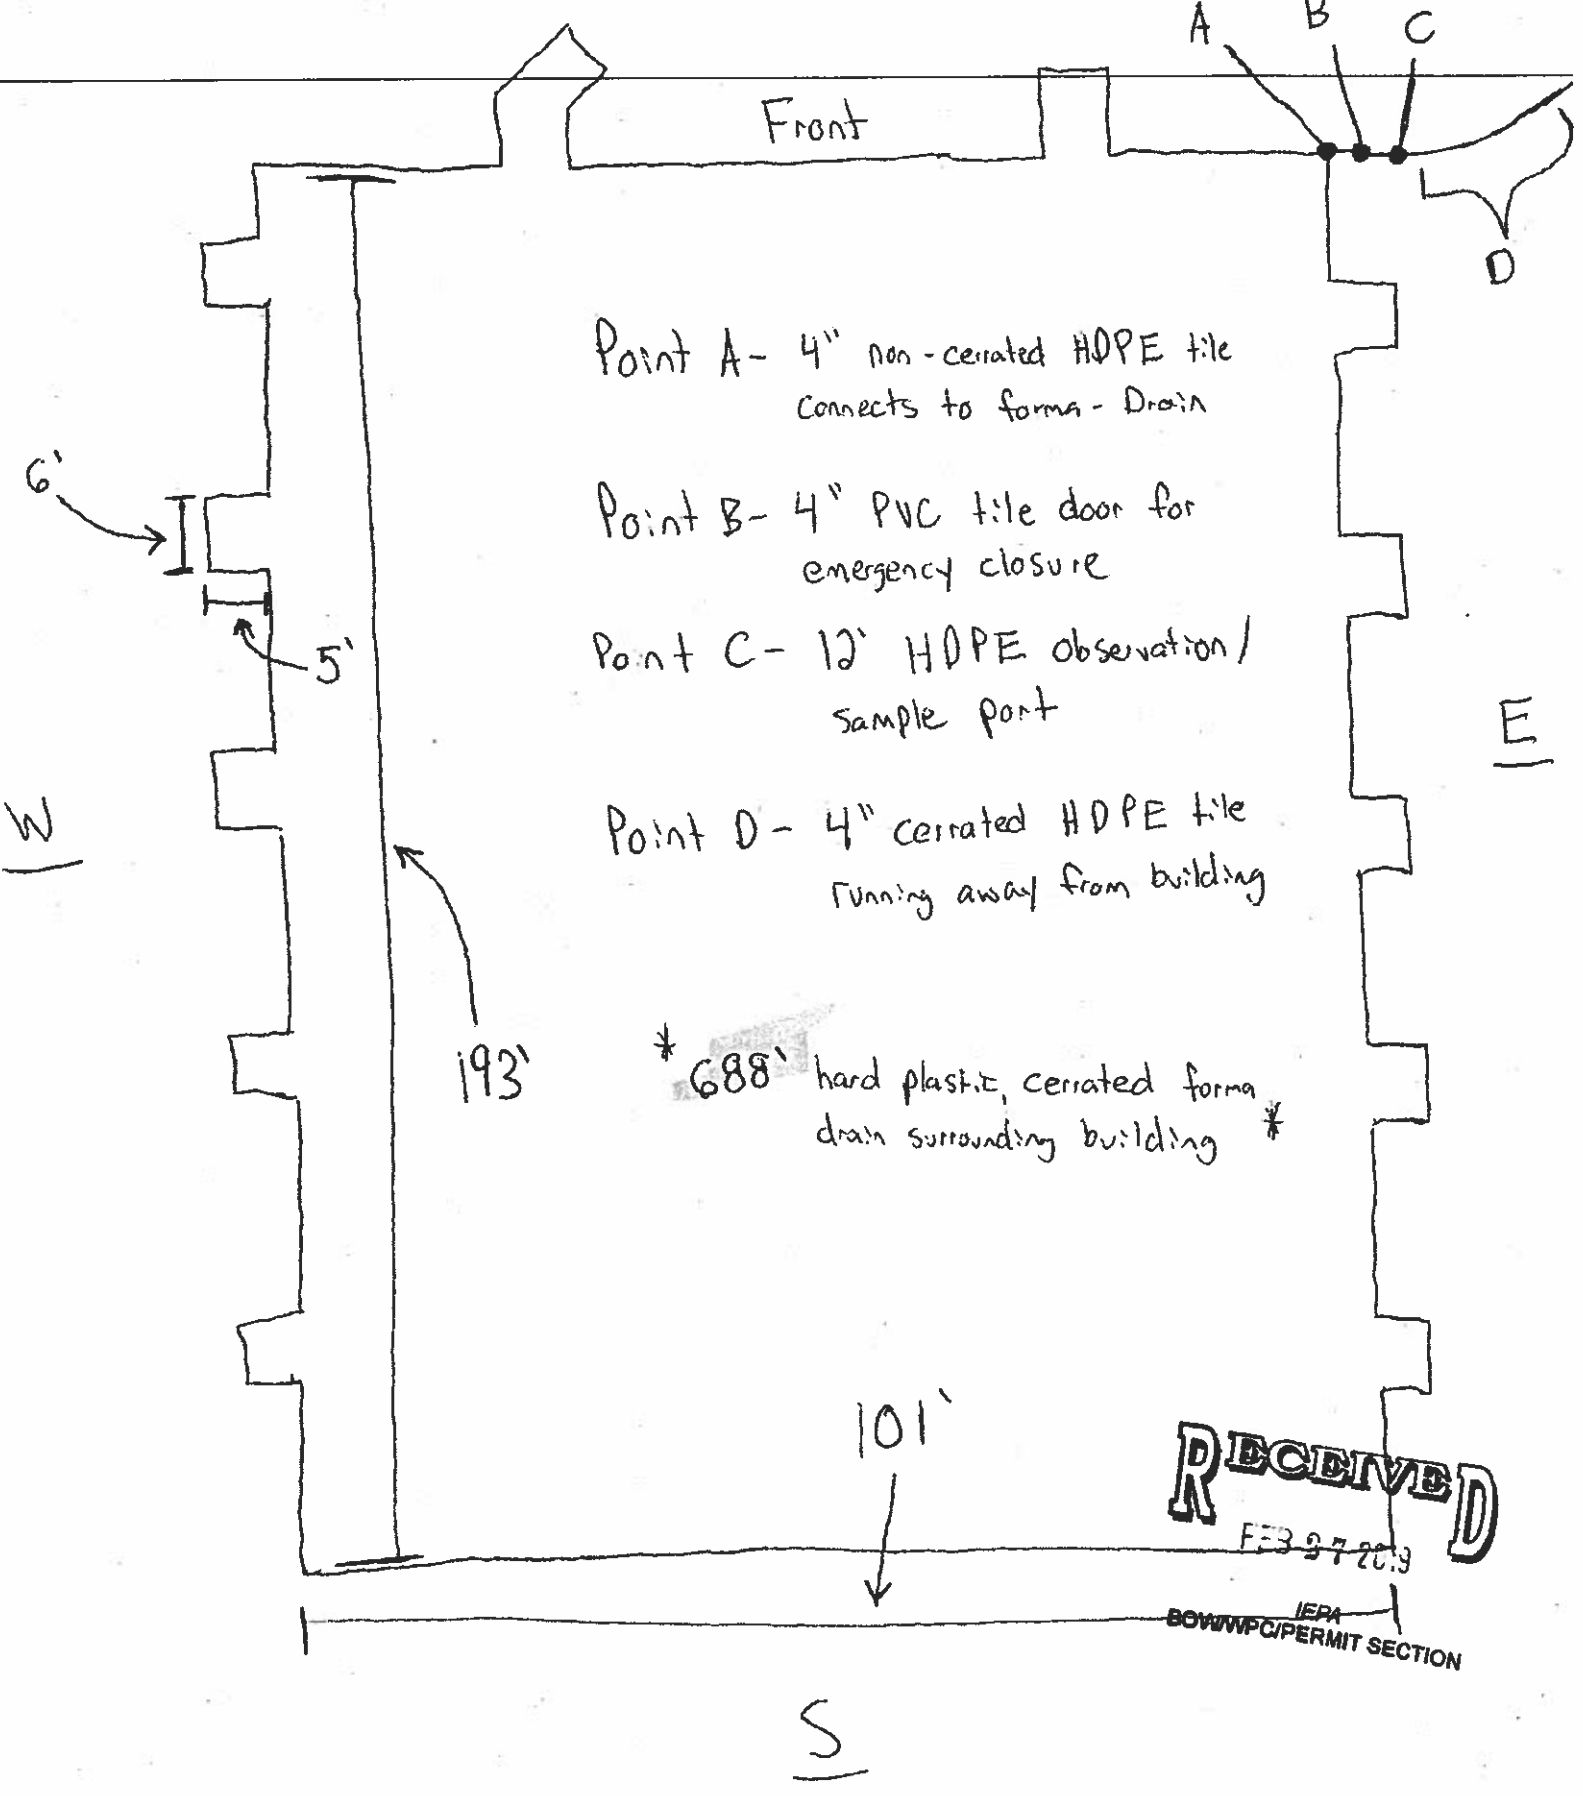 A B C
Front
D
Point A- 4" non-cerrated HDPE tile
connects to forma-Drain
6'
Point B- 4" PVC tile door for
emergency closure
5'
Point C- 12' HDPE observation/
sample port
E
W
Point D- 4" cerrated HDPE tile
running away from building
193'
*688' hard plastic, cerrated forma
drain surrounding building *
101'
RECEIVED
FEB 2019
IEPA
BOW/WPC/PERMIT SECTION
S